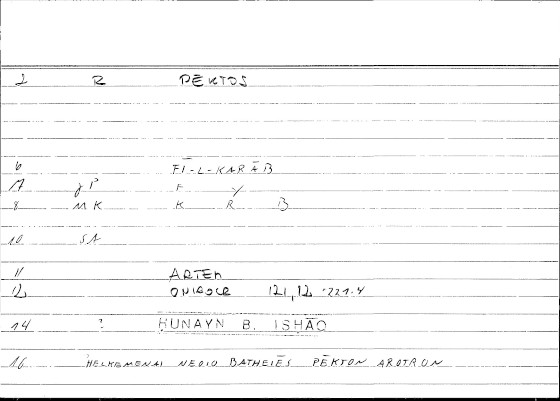 1 R PĒKTOS
6 FĪ-L-KARĀB
7 gP F Y
8 MK K R B
10 SA
11 ARTEM
12 ONIROCR 121,12 -221.4
14 ? HUNAYN B. ISHĀQ
16 HELKEMENAI NEOIO BATHEIĒS PĒKTON AROTRON